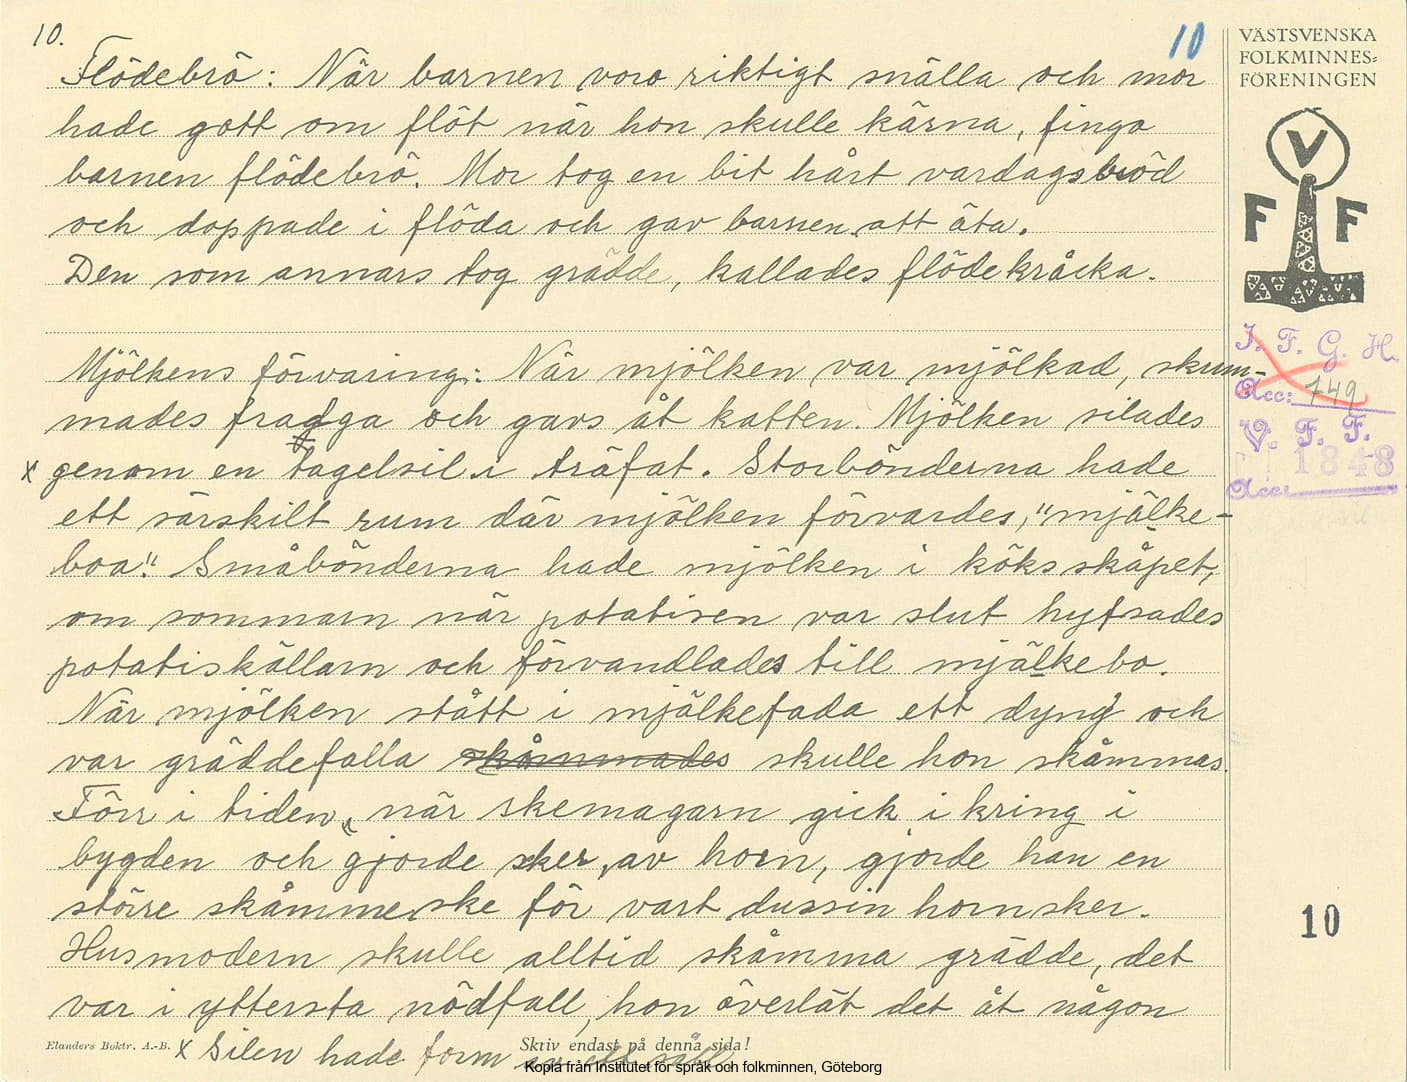 10.
10
VÄSTSVENSKA
FOLKMINNES=
FÖRENINGEN
V
F F
Flödebrö: När barnen voro riktigt snälla och mor
hade gott om flöt när hon skulle kärna, fingo
barnen flödebrö. Mor tog en bit hårt vardagsbröd
och doppade i flöda och gav barnen att äta.
Den som annars tog grädde, kallades flödekråcka.
I. F. G. H.
Acc: 149
V. F. F.
1848
Acc:
Mjölkens förvaring: När mjölken var mjölkad, skum-
mades fradga och gavs åt katten. Mjölken silades
x genom en tagelsil i träfat. Storbönderna hade
ett särskilt rum där mjölken förvardes, "mjälke-
boa". Småbönderna hade mjölken i köksskåpet,
om sommarn när potatisen var slut hyfsades
potatiskällarn och förvandlades till mjälkebo.
När mjölken stått i mjälkefada ett dyng och
var gräddefalla skåmmades skulle hon skåmmas.
Förr i tiden, när skemagarn gick ikring i
bygden och gjorde sker, av horn, gjorde han en
större skåmmeske för vart dussin hornsker.
10
Husmodern skulle alltid skåmma grädde, det
var i yttersta nödfall, hon överlät det åt någon
Elanders Boktr. A.-B.
Skriv endast på denna sida!
x Silen hade form
Kopia från Institutet för språk och folkminnen, Göteborg